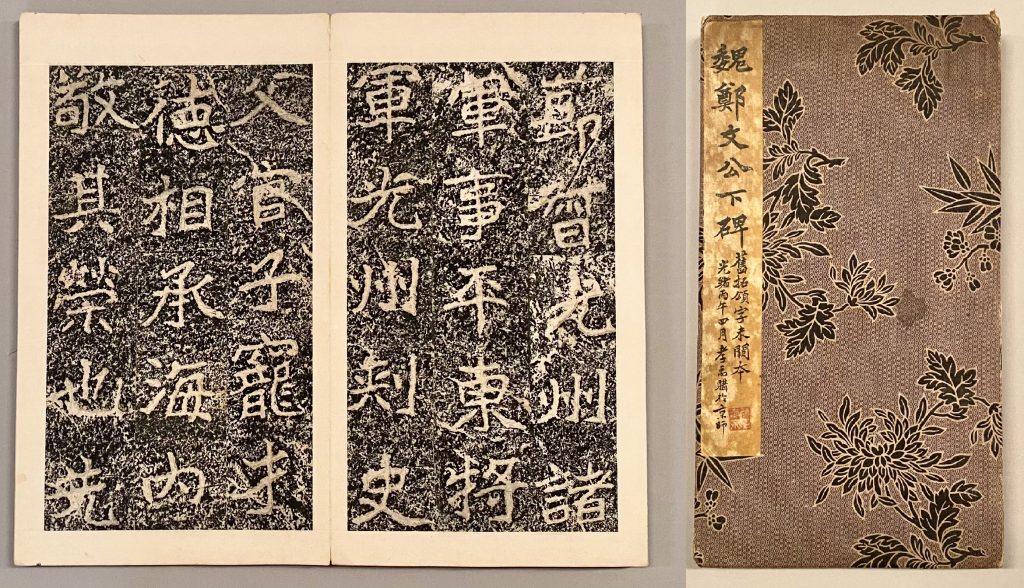 節督光州諸
軍事平東將
軍光州刾史
父官子寵才
德相承海內
敬其榮也先
魏鄭文公下碑
舊拓碩字未闕本
光緒丙午四月孝禹購於京師